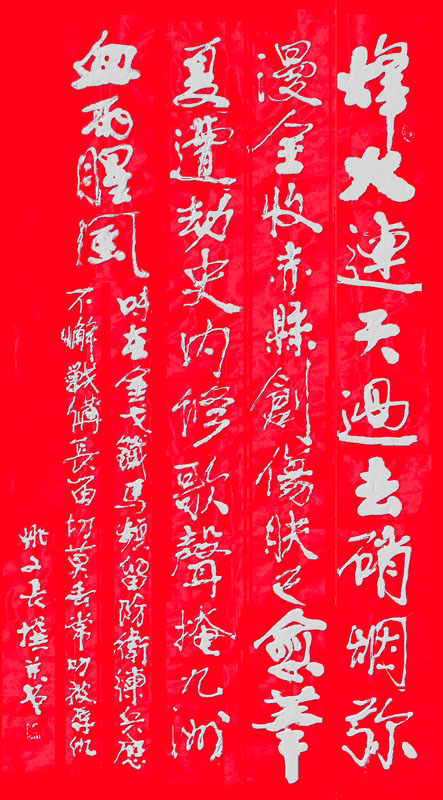 烽火連天過去硝烟弥
漫全收赤縣創傷已愈華
夏遭劫史内修歌聲掩九洲
血雨腥風
時在金戈鐵馬頻留防衛練兵應
不懈戰備長留切莫丢常
姚文長撰并书